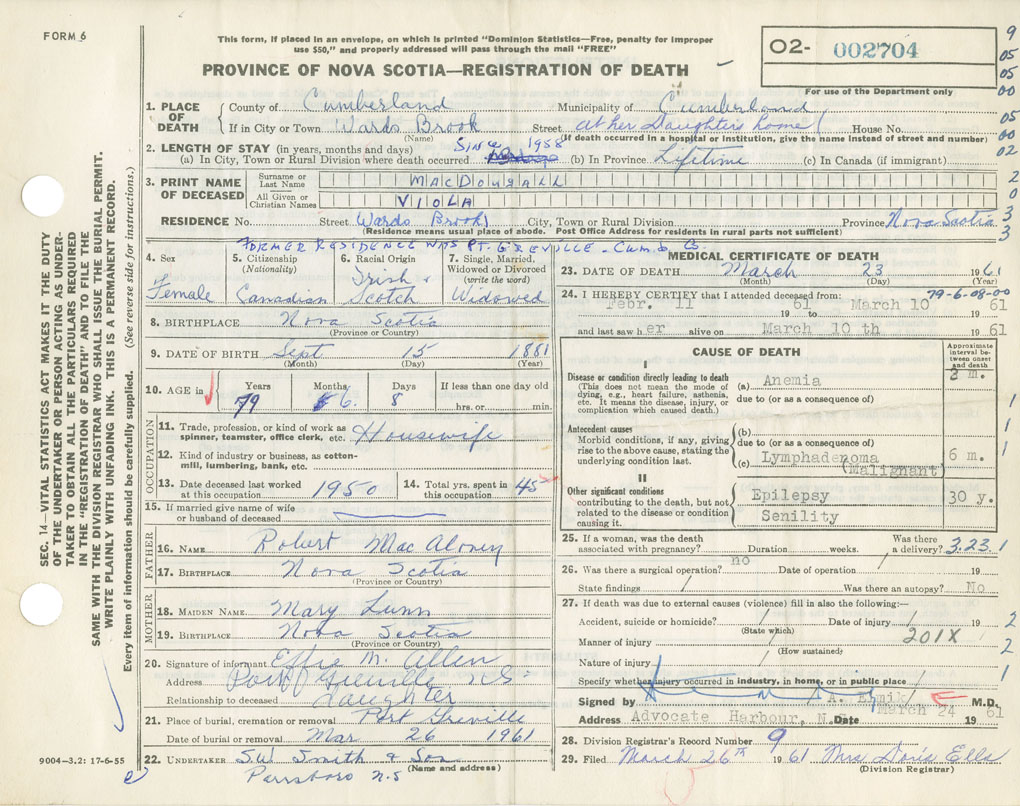 FORM 6
This form, if placed in an envelope, on which is printed "Dominion Statistics—Free, penalty for improper
use $50," and properly addressed will pass through the mail "FREE"
PROVINCE OF NOVA SCOTIA—REGISTRATION OF DEATH
O2- 002704
For use of the Department only
9
05
05
00
05
00
02
2
0
3
3
1. PLACE OF DEATH
County of Cumberland Municipality of Cumberland
If in City or Town Wards Brook Street at her Daughters home House No.
(Name) (If death occurred in a hospital or institution, give the name instead of street and number)
2. LENGTH OF STAY (in years, months and days) Since 1958
(a) In City, Town or Rural Division where death occurred (b) In Province Lifetime (c) In Canada (if immigrant)
3. PRINT NAME OF DECEASED
Surname or Last Name MACDOUGALL
All Given or Christian Names VIOLA
RESIDENCE No. Street Wards Brook City, Town or Rural Division Province Nova Scotia
(Residence means usual place of abode. Post Office Address for residents in rural parts not sufficient)
FORMER RESIDENCE WAS PT. GREVILLE - Cumb. Co.
4. Sex
Female
5. Citizenship
(Nationality)
Canadian
6. Racial Origin
Irish
Scotch
7. Single, Married,
Widowed or Divorced
(write the word)
Widowed
8. BIRTHPLACE Nova Scotia
(Province or Country)
9. DATE OF BIRTH Sept 15 1881
(Month) (Day) (Year)
10. AGE in
Years Months Days If less than one day old
79 6. 8 hrs. or min.
OCCUPATION
11. Trade, profession, or kind of work as
spinner, teamster, office clerk, etc. Housewife
12. Kind of industry or business, as cotton-
mill, lumbering, bank, etc.
13. Date deceased last worked
at this occupation 1950
14. Total yrs. spent in
this occupation 45
15. If married give name of wife
or husband of deceased
FATHER
16. NAME Robert Mac Aloney
17. BIRTHPLACE Nova Scotia
(Province or Country)
MOTHER
18. MAIDEN NAME Mary Lunn
19. BIRTHPLACE Nova Scotia
(Province or Country)
20. Signature of informant Effie M. Allen
Address Port Greville N.S.
Relationship to deceased daughter
21. Place of burial, cremation or removal Port Greville
Date of burial or removal Mar 26 1961
22. UNDERTAKER S.W. Smith & Son
(Name and address)
Parrsboro N.S
MEDICAL CERTIFICATE OF DEATH
23. DATE OF DEATH March 23 1961
(Month) (Day) (Year)
24. I HEREBY CERTIFY that I attended deceased from: 79-6-08-00
Febr. 11 1961 to March 10 1961
and last saw her alive on March 10 th 1961
CAUSE OF DEATH
Approximate
interval be-
tween onset
and death
I
Disease or condition directly leading to death
(This does not mean the mode of
dying, e.g., heart failure, asthenia,
etc. It means the disease, injury, or
complication which caused death.)
(a) Anemia 2 m.
due to (or as a consequence of)
Antecedent causes
Morbid conditions, if any, giving
rise to the above cause, stating the
underlying condition last.
(b)
due to (or as a consequence of)
(c) Lymphadenoma 6 m.
(Malignant)
II
Other significant conditions
contributing to the death, but not
related to the disease or condition
causing it.
Epilepsy 30 y.
Senility
1
1
1
25. If a woman, was the death
associated with pregnancy? Duration weeks. Was there
a delivery? 3.23.1
26. Was there a surgical operation? no Date of operation 19
State findings Was there an autopsy? No
27. If death was due to external causes (violence) fill in also the following:—
Accident, suicide or homicide? Date of injury 19
(State which)
Manner of injury 201X
(How sustained)
Nature of injury
Specify whether injury occurred in industry, in home, or in public place
2
2
1
Signed by M.D.
Address Advocate Harbour, N. Date March 24 1961
28. Division Registrar's Record Number 9
29. Filed March 26th 1961 Mrs Doris Ells
(Division Registrar)
SEC. 14—VITAL STATISTICS ACT MAKES IT THE DUTY
OF THE UNDERTAKER OR PERSON ACTING AS UNDER-
TAKER TO OBTAIN ALL THE PARTICULARS REQUIRED
IN THE "REGISTRATION OF DEATH" AND TO FILE THE
SAME WITH THE DIVISION REGISTRAR WHO SHALL ISSUE THE BURIAL PERMIT.
WRITE PLAINLY WITH UNFADING INK. THIS IS A PERMANENT RECORD.
Every item of information should be carefully supplied. (See reverse side for instructions.)
9004-3.2: 17-6-55